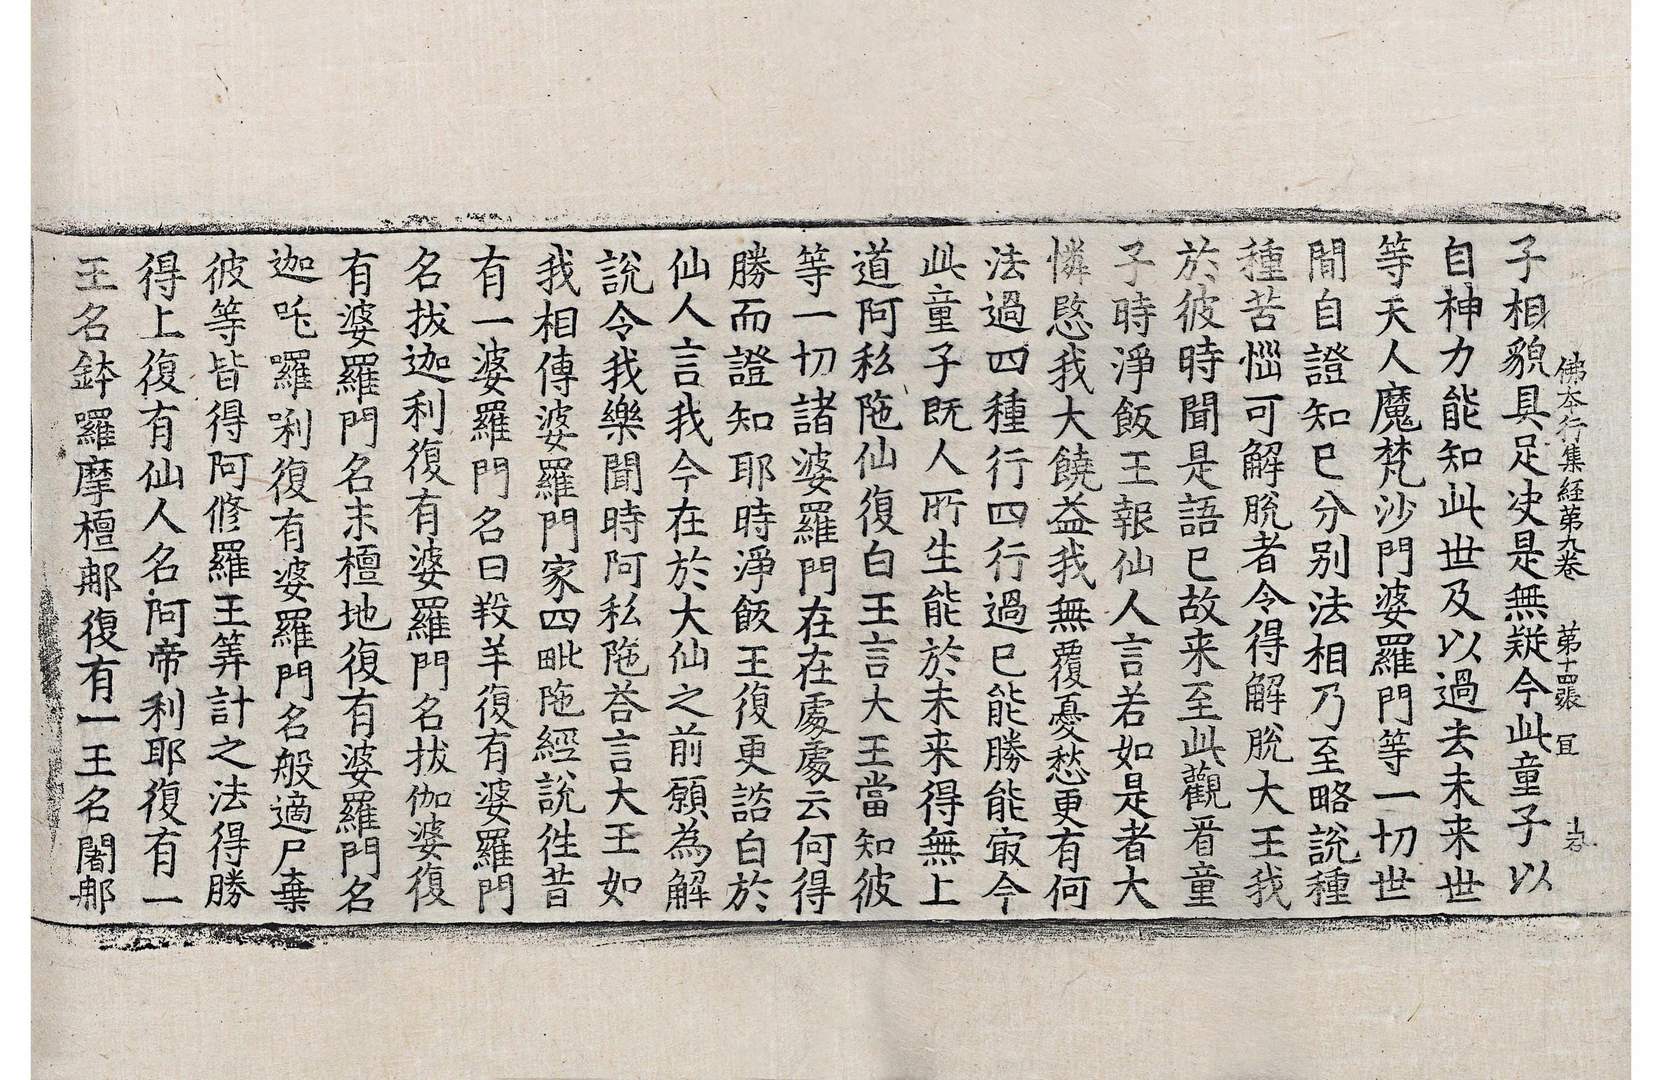 佛本行集経第九卷 第十四張 冝
子相貌具足决是無疑今此童子以
自神力能知此世及以過去未来世
等天人魔梵沙門婆羅門等一切世
間自證知已分别法相乃至略說種
種苦惱可解脫者令得解脫大王我
於彼時聞是語已故来至此觀看童
子時淨飯王報仙人言若如是者大
憐愍我大饒益我無覆憂愁更有何
法過四種行四行過已能勝能㝡今
此童子既人所生能於未来得無上
道阿私陁仙復白王言大王當知彼
等一切諸婆羅門在在處處云何得
勝而證知耶時淨飯王復更諮白於
仙人言我今在於大仙之前願為解
說令我樂聞時阿私陁荅言大王如
我相傳婆羅門家四毗陁經說徃昔
有一婆羅門名曰羖羊復有婆羅門
名拔迦利復有婆羅門名拔伽婆復
有婆羅門名末檀地復有婆羅門名
迦吒囉唎復有婆羅門名般適尸棄
彼等皆得阿修羅王筭計之法得勝
得上復有仙人名阿帝利耶復有一
王名鉢囉摩檀郍復有一王名闍郍